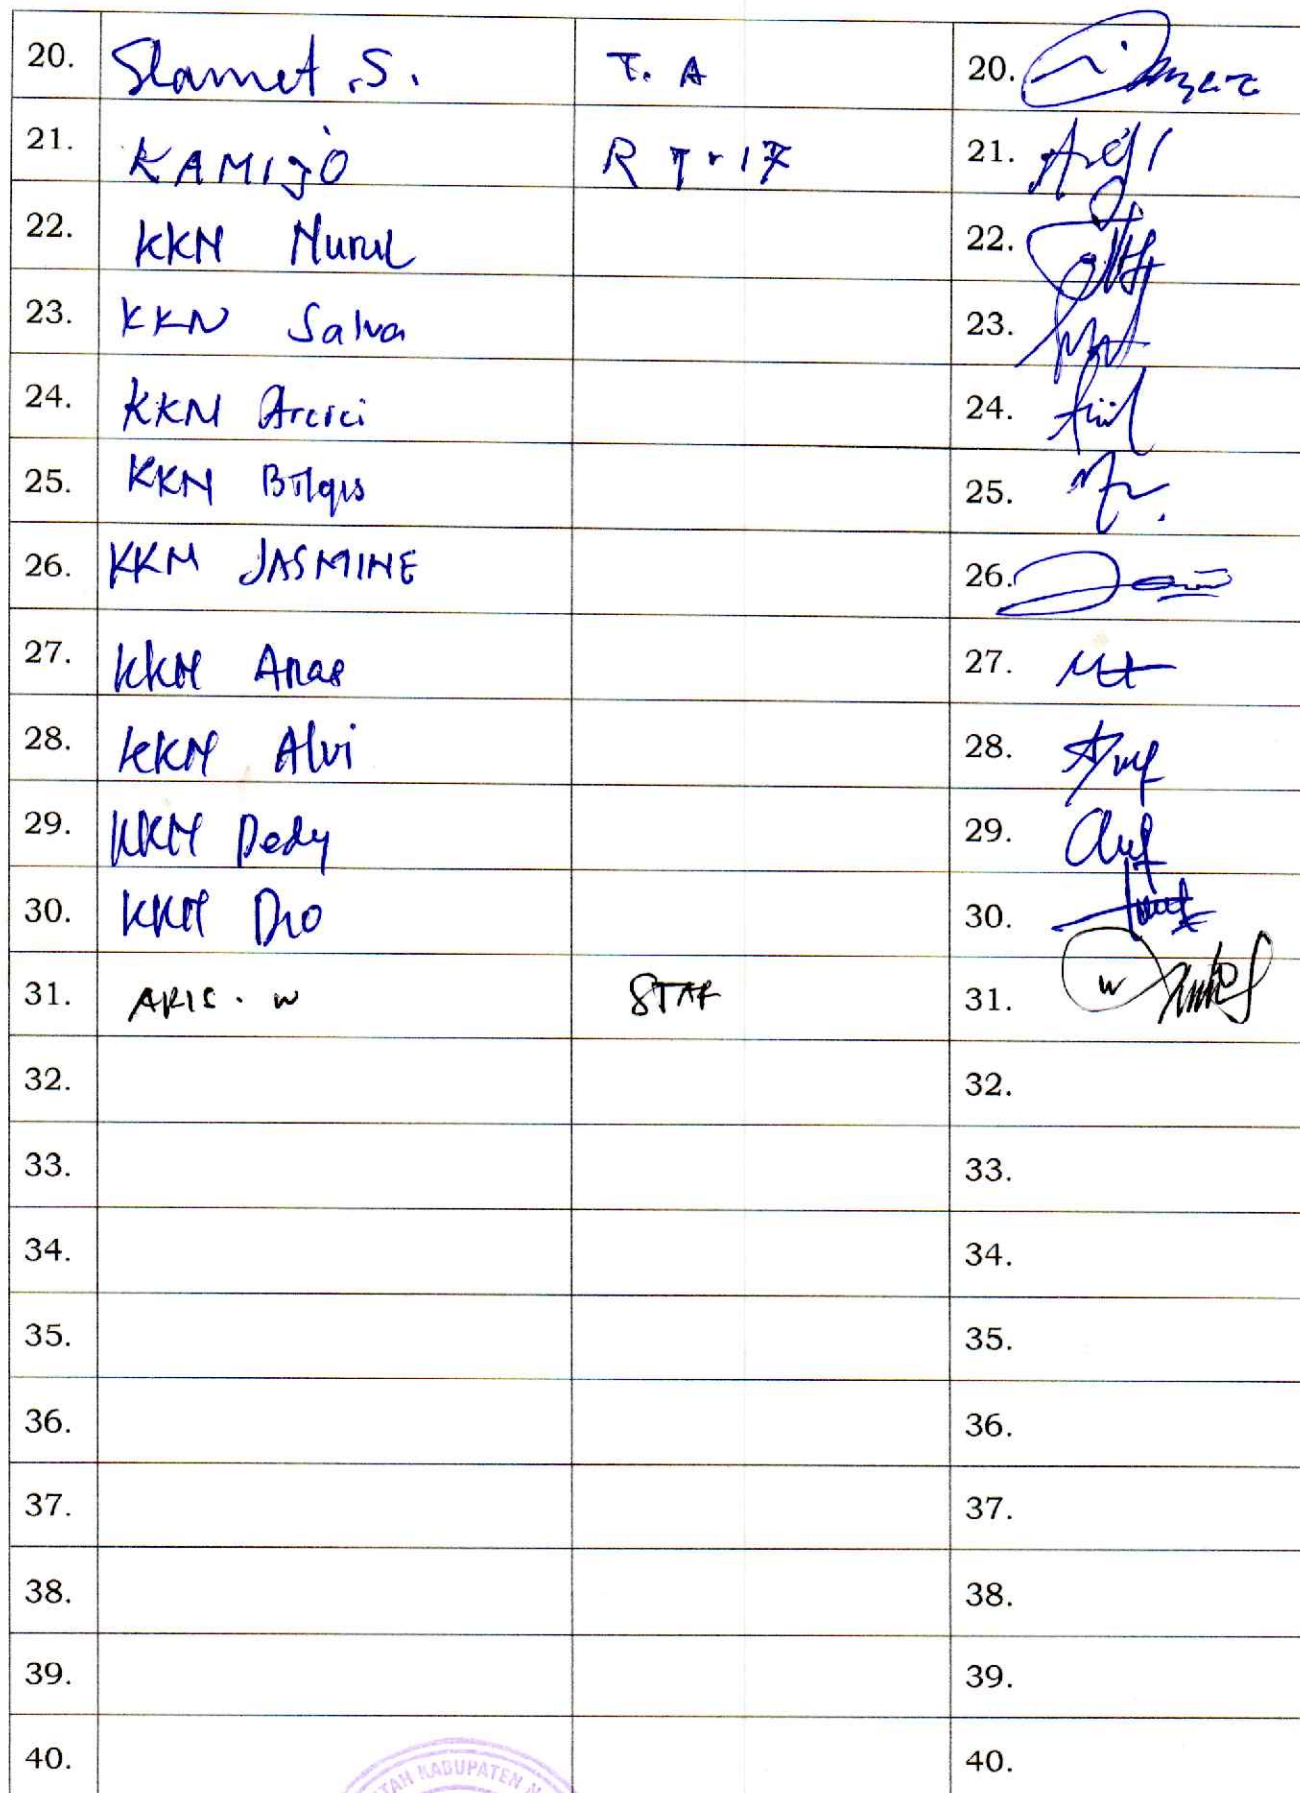 20. Slamet .S. T. A 20.
21. KAMIJO R T. 17 21.
22. KKN Nurul 22.
23. KKN Salva 23.
24. KKN 24.
25. KKN Bilqis 25.
26. KKN JASMINE 26.
27. KKN Anas 27.
28. KKN Alvi 28.
29. KKN Dedy 29.
30. KKN Dio 30.
31. ARIS. W STAF 31. W
32. 32.
33. 33.
34. 34.
35. 35.
36. 36.
37. 37.
38. 38.
39. 39.
40. 40.
KABUPATEN